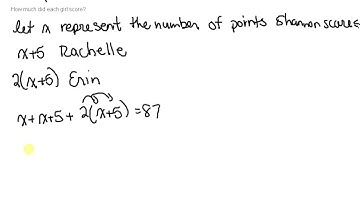 How much did each girl score?
let x represent the number of points Shannon scores
x+5 Rachelle
2(x+5) Erin
x+x+5+2(x+5)=87